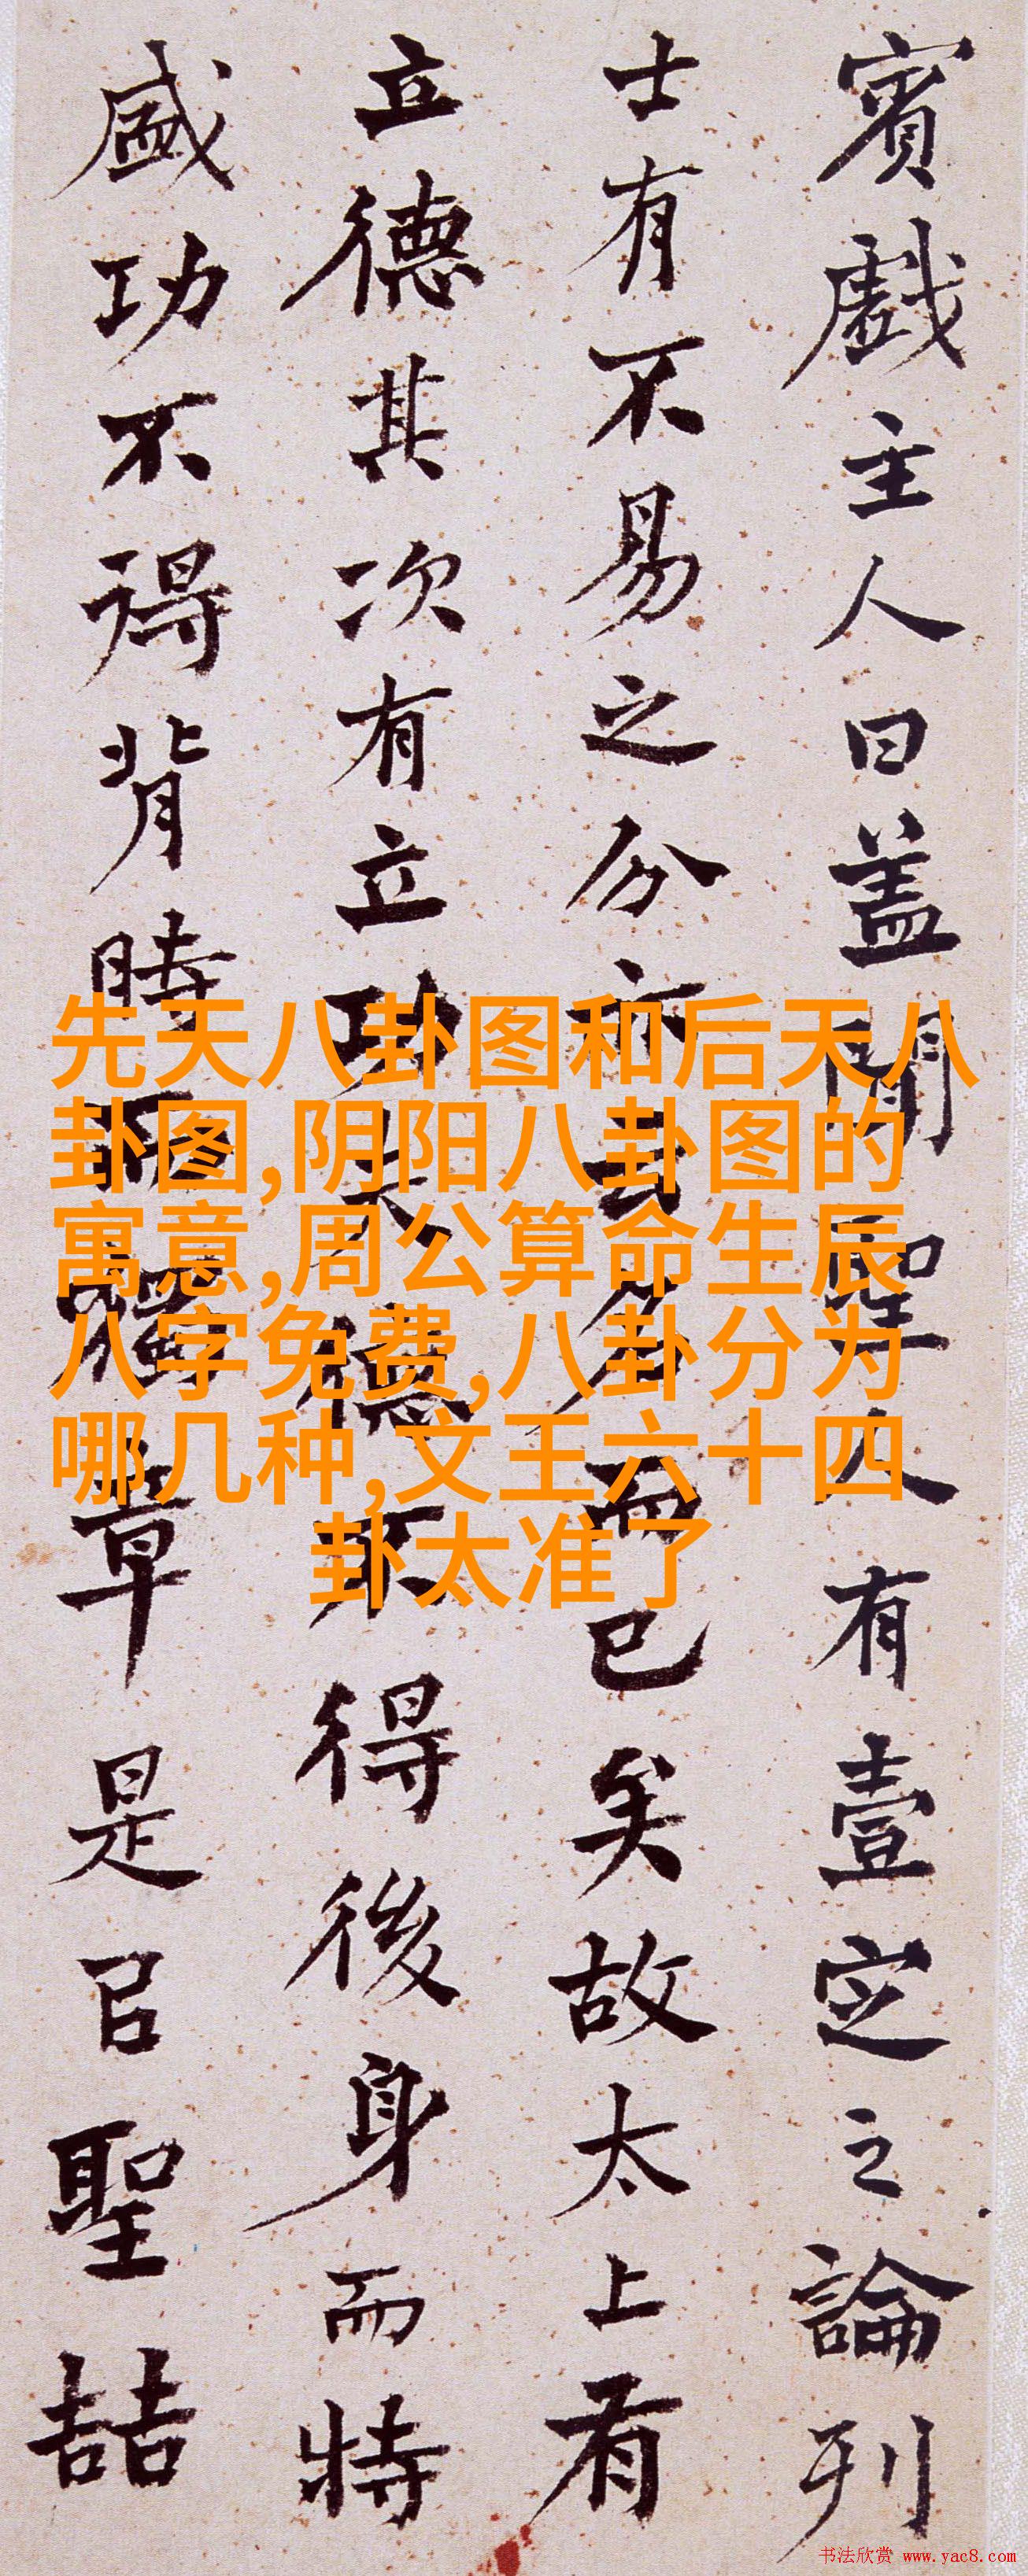 賓戲主人曰盖聞聖人有壹定之論列
士有不易之分亦云名而已矣故太上有
立德其次有立功夫德不得後身而特
盛功不得背時而獨章是㠯聖喆
先天八卦图和后天八
卦图,阴阳八卦图的
寓意,周公算命生辰
八字免费,八卦分为
哪几种,文王六十四
卦太准了
书法欣赏 www.yac8.com